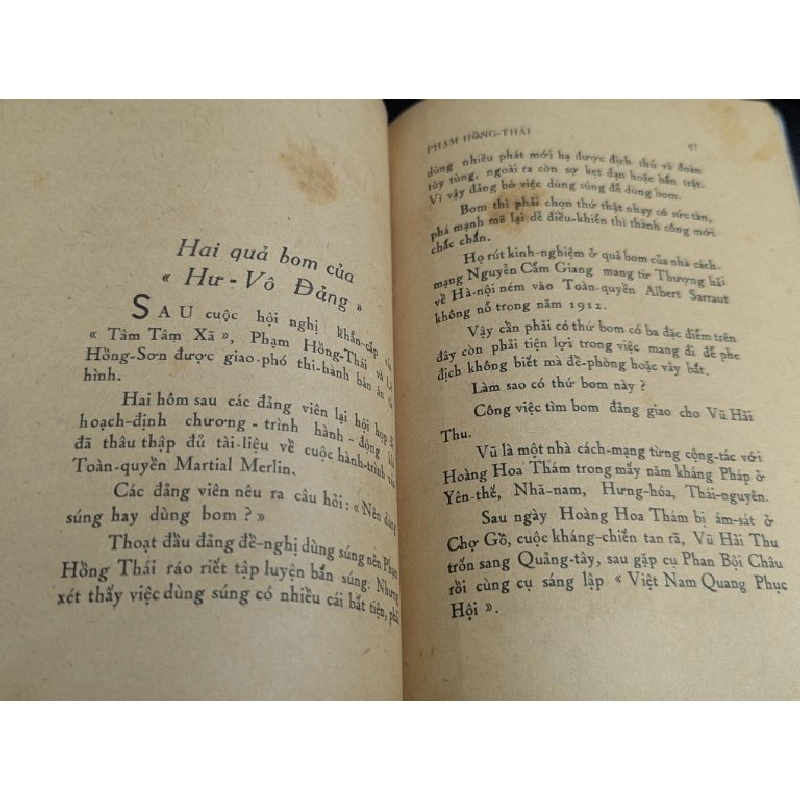 Hai quả bom của
« Hư - Vô Đảng »
SAU cuộc hội nghị khẩn-cấp
« Tâm Tâm Xã », Phạm Hồng-Thái và
Hồng-Sơn được giao-phó thi-hành bản án
hình.
Hai hôm sau các đảng viên lại hội họp
hoạch-định chương-trình hành-động
đã thâu thập đủ tài-liệu về cuộc hành-trình
Toàn-quyền Martial Merlin.
Các đảng viên nêu ra câu hỏi: «Nên dùng
súng hay dùng bom ?»
Thoạt đầu đảng đề-nghị dùng súng nên Phạm
Hồng Thái ráo riết tập luyện bắn súng. Nhưng
xét thấy việc dùng súng có nhiều cái bất tiện, phải
PHẠM HỒNG-THÁI 67
dùng nhiều phát mới hạ được địch thủ và đoàn
tùy tùng, ngoài ra còn sợ kẹt đạn hoặc bắn trật.
Vì vậy đảng bỏ việc dùng súng để dùng bom.
Bom thì phải chọn thứ thật nhạy có sức tàn,
phá mạnh mẽ lại dễ điều-khiển thì thành công mới
chắc chắn.
Họ rút kinh-nghiệm ở quả bom của nhà cách-
mạng Nguyễn Cẩm Giang mang từ Thượng hải
về Hà-nội ném vào Toàn-quyền Albert Sarraut
không nổ trong năm 1912.
Vậy cần phải có thứ bom có ba đặc điểm trên
đây còn phải tiện lợi trong việc mang đi để phe
địch không biết mà đề-phòng hoặc vây bắt.
Làm sao có thứ bom này ?
Công việc tìm bom đảng giao cho Vũ Hải
Thu.
Vũ là một nhà cách-mạng từng cộng-tác với
Hoàng Hoa Thám trong mấy năm kháng Pháp ở
Yên-thế, Nhã-nam, Hưng-hóa, Thái-nguyên.
Sau ngày Hoàng Hoa Thám bị ám-sát ở
Chợ Gồ, cuộc kháng-chiến tan rã, Vũ Hải Thu
trốn sang Quảng-tây, sau gặp cụ Phan Bội Châu
rồi cùng cụ sáng lập « Việt Nam Quang Phục
Hội ».